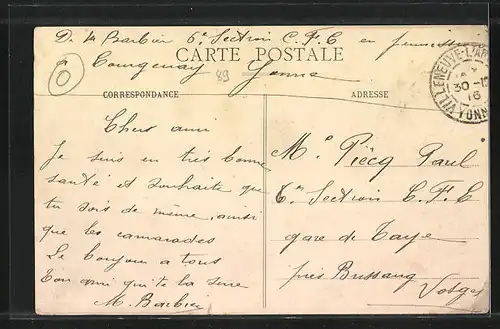 De M Barbier 6e Section C.F.C en
CARTE POSTALE
Courgenay Yonne
89
CORRESPONDANCE
ADRESSE
VILLENEUVE-L'AR
30-1
16
YONNE
Chers ami
Je suis en très bonne
santé et souhaite que
tu sois de même, ainsi
que les camarades
Le bonjour a tous
Ton ami qui te la serre
M. Barbier
Mr Piècq Paul
6e Section C.F.C
gare de Taye
près Bussang
Vosges